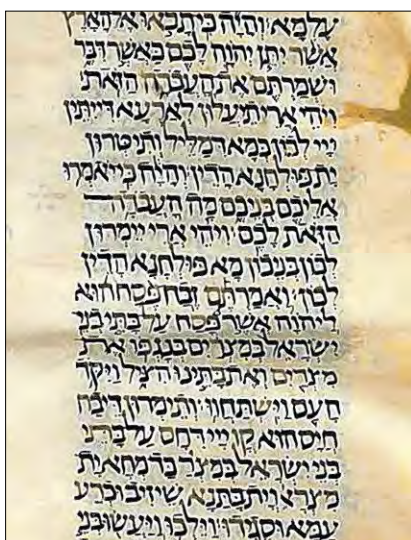 עלמא והיה כי תבאו אל הארץ
אשר יתן יהוה לכם כאשר דבר
ושמרתם את העבדה הזאת
ויהי ארי תיעלון לארעא דייתין
ייי לכון כמא דמליל ותיטרון
ית פולחנא הדין והיה כי יאמרו
אליכם בניכם מה העבדה
הזאת לכם ויהי ארי יימרון
לכון בניכון מא פולחנא הדין
לכון ואמרתם זבח פסח הוא
ליהוה אשר פסח על בתי בני
ישראל במצרים בנגפו את
מצרים ואת בתינו הציל ויקד
העם וישתחוו ותימרון דיבח
חייס הוא קד ייי דחס על בתי
בני ישראל במצר כד מחא ית
מצראי וית בתנא שיזיב וכרע
עמא וסגידו וילכו ויעשו בני